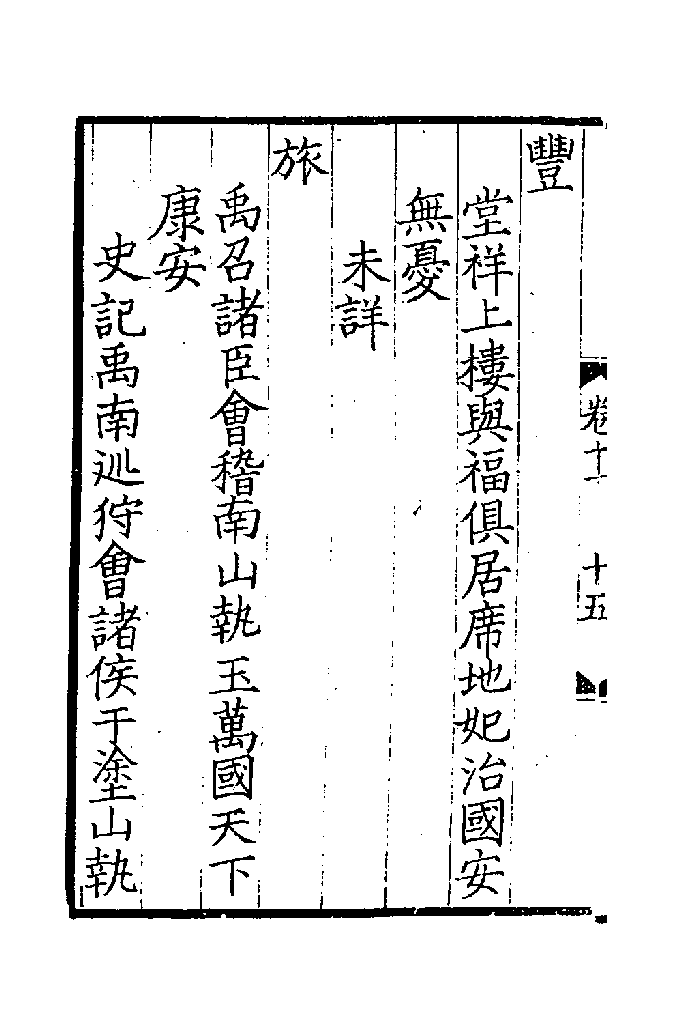 卷十一 十五
豐
堂祥上樓與福俱居席地妃治國安
無憂
未詳
旅
禹召諸臣會稽南山執玉萬國天下
康安
史記禹南廵狩會諸侯于塗山執